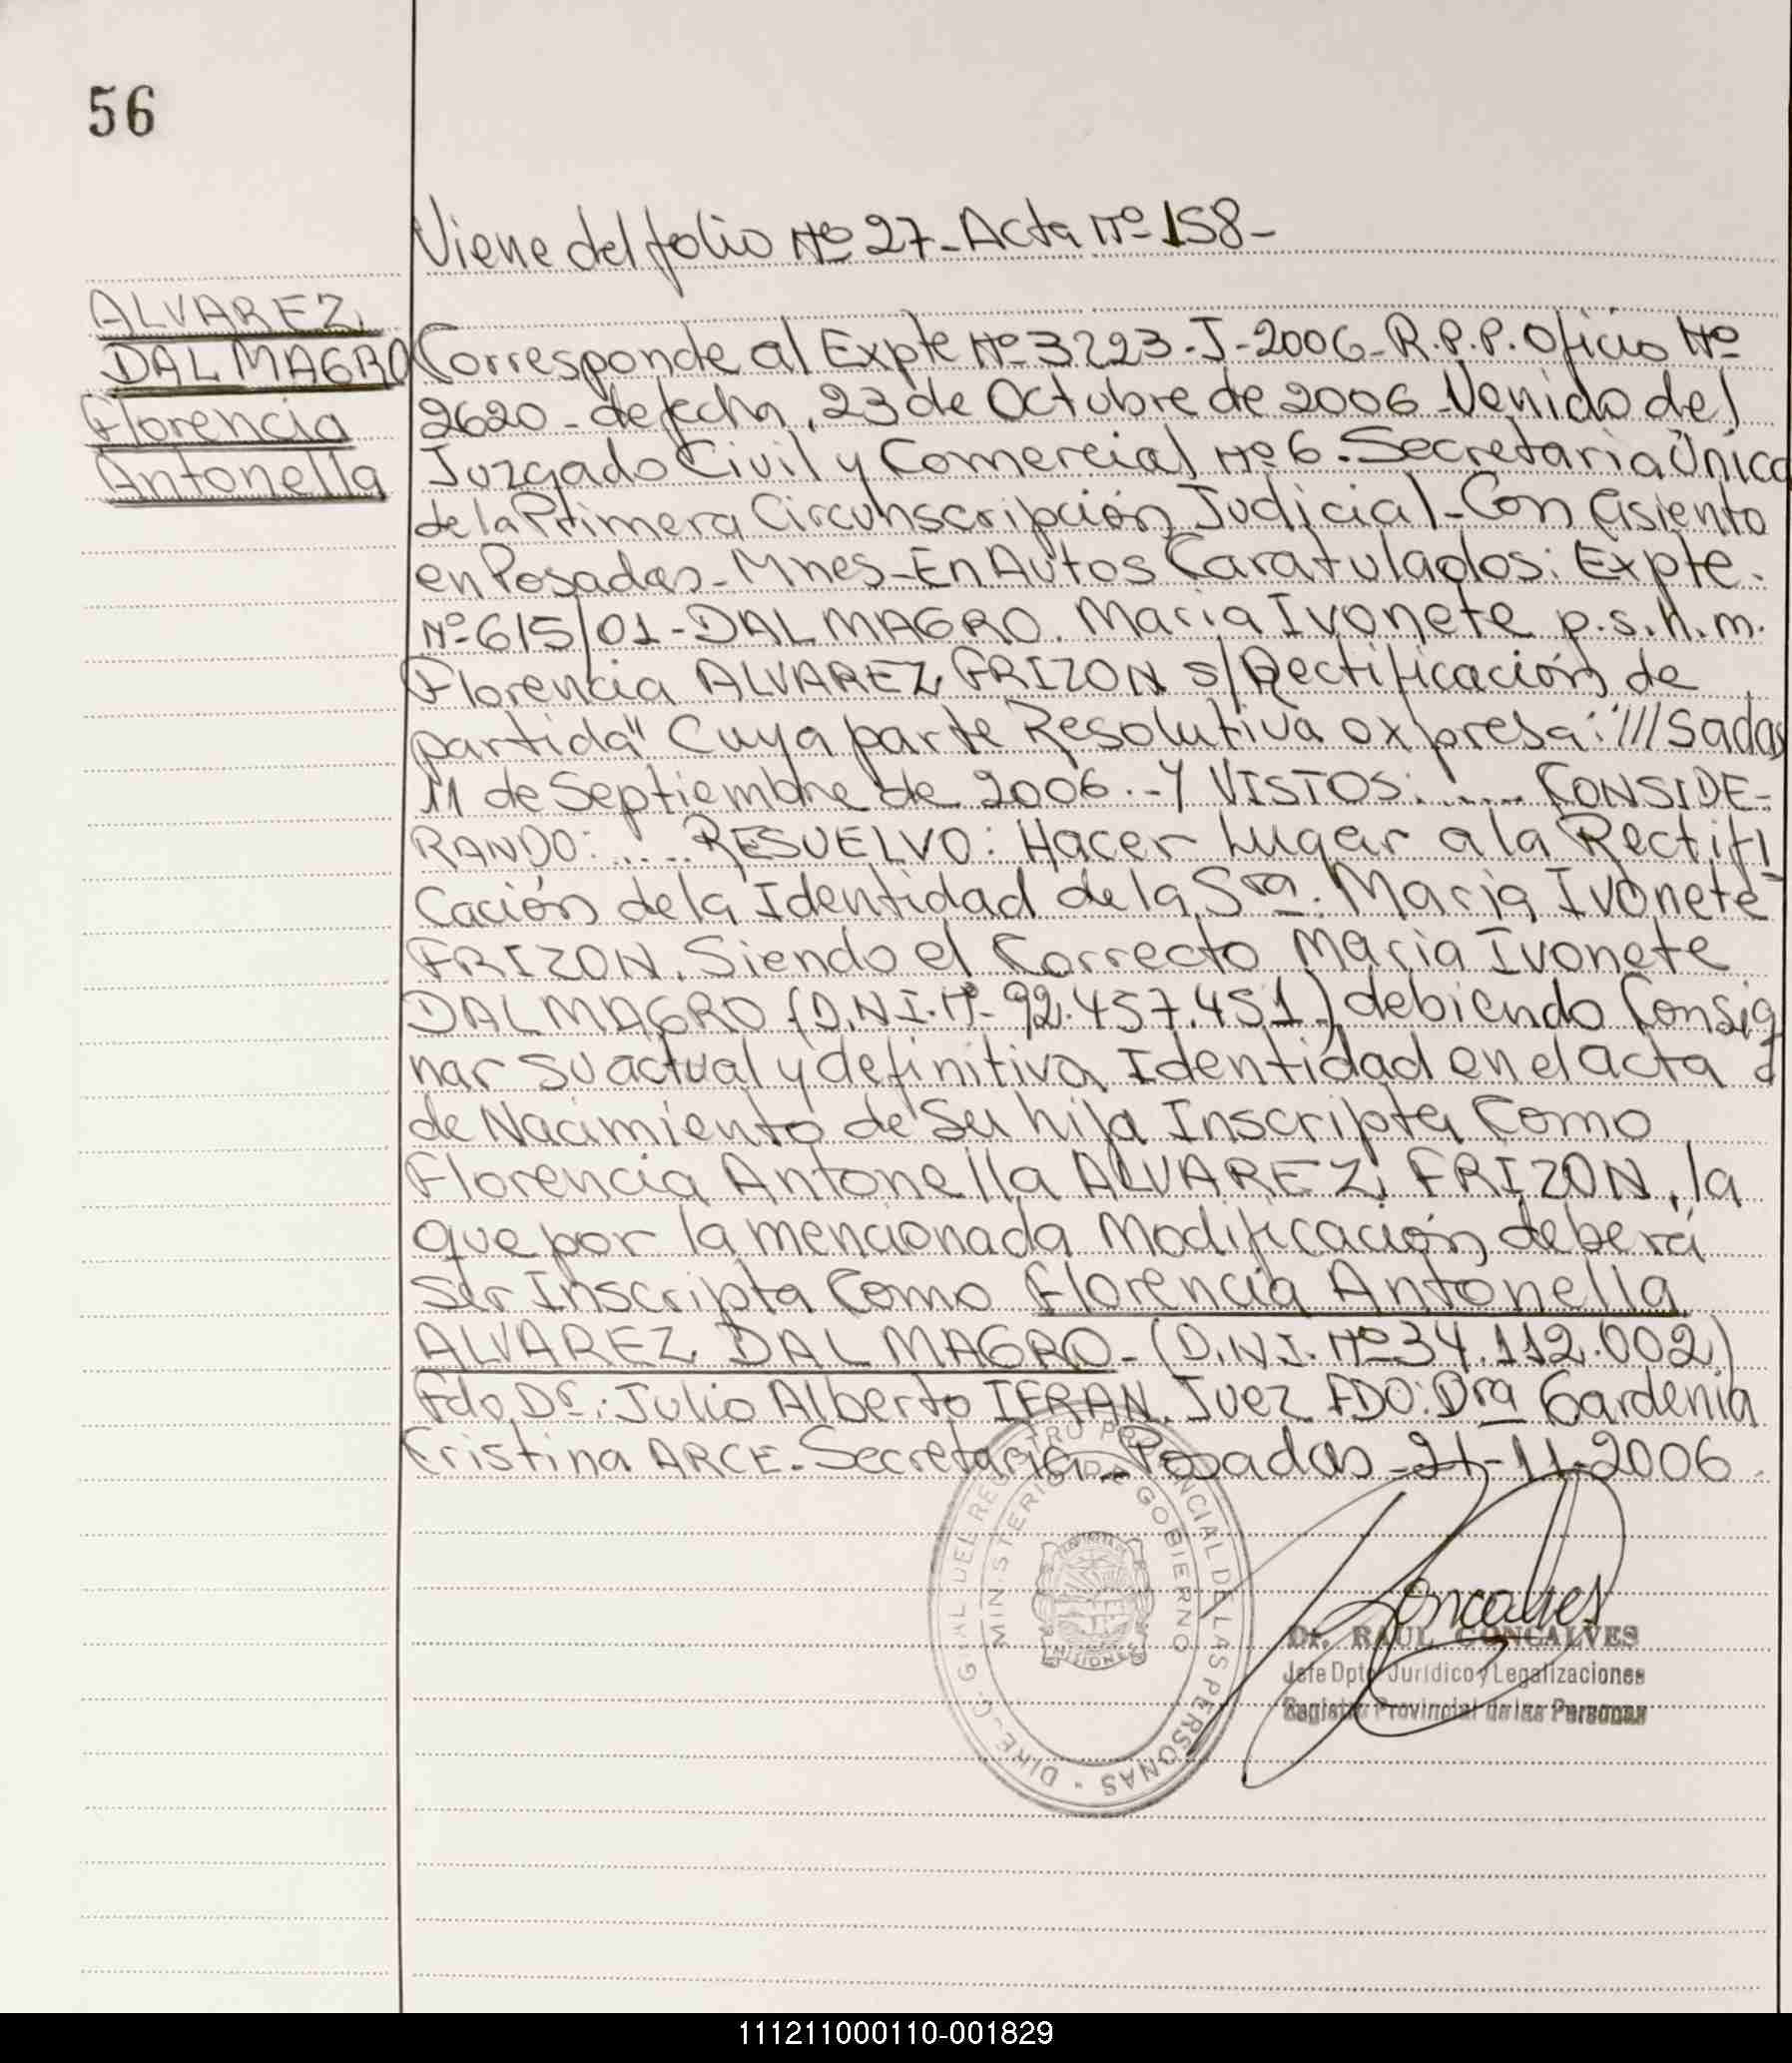 56
Viene del folio Nº 27-Acta Nº 158-
ALVAREZ
DAL MAGRO
Florencia
Antonella
Corresponde al Expte Nº 3223-J-2006-R.P.P. Oficio Nº
2620-de fecha, 23 de Octubre de 2006-Venido del
Juzgado Civil y Comercial Nº 6.Secretaria Única
de la Primera Circunscripción Judicial-Con asiento
en Posadas-Mnes-En Autos Caratulados: Expte.
Nº 615/01-DAL MAGRO. Maria Ivonete p.s.h.m.
Florencia ALVAREZ FRIZON s/Rectificación de
partida" Cuya parte Resolutiva expresa: "///sadas
11 de Septiembre de 2006.-Y VISTOS:..... CONSIDE-
RANDO:..... RESUELVO: Hacer Lugar a la Rectifi
Cación de la Identidad de la Sra. Maria Ivonete
FRIZON, Siendo el Correcto Maria Ivonete
DAL MAGRO (D.N.I. Nº 92.457.451.) debiendo Consig
nar su actual y definitiva Identidad en el acta d
de Nacimiento de Su hija Inscripta Como
Florencia Antonella ALVAREZ FRIZON, la
que por la mencionada Modificación deberá
Ser Inscripta Como Florencia Antonella
ALVAREZ DAL MAGRO-(D.N.I. Nº 34.112.002)
Fdo. Dr.: Julio Alberto IFRAN. Juez FDO: Dra Gardenia
Cristina ARCE-Secretaria-Posadas-21-11-2006
DIREC. GRAL DEL REGISTRO PROVINCIAL DE LAS PERSONAS
MINISTERIO DE GOBIERNO
MISIONES
Goncalves
Dr. RAUL GONCALVES
Jefe Dpto Jurídico y Legalizaciones
Registro Provincial de las Personas
111211000110-001829